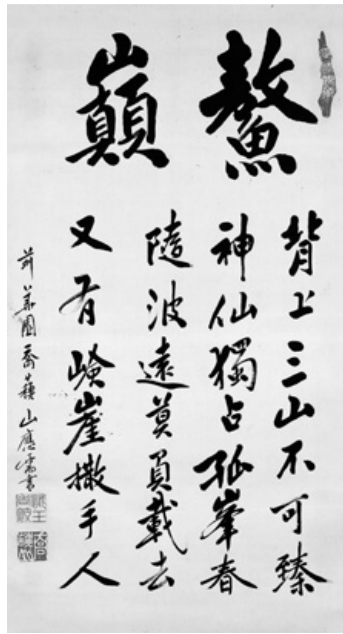 鰲巔
背上三山不可臻
神仙獨占孤峯春
隨波遠莫負載去
又有嶮崖撒手人
前山應需書